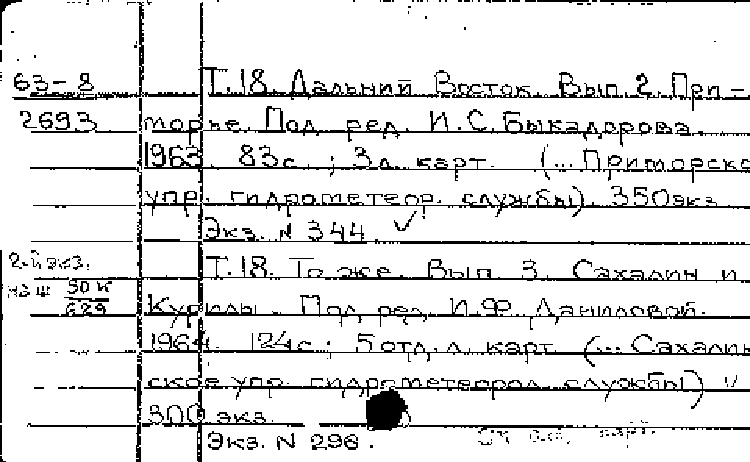 63-8 Т.18. Дальний Восток. Вып. 2. При-
2693 морье. Под ред. И.С. Быкадорова.
1963. 83с.; 3л. карт. (... Приморско
упр. гидрометеор. службы). 350экз.
Экз. N 344 ✓
2-й экз. Т.18. То же. Вып. 3. Сахалин и
30 К
629 Курилы. Под ред. И.Ф. Даниловой.
1964. 124с.; 5 отд. л. карт. (... Сахалин
ское упр. гидрометеорол. службы) ✓
300 экз.
Экз. N 296.